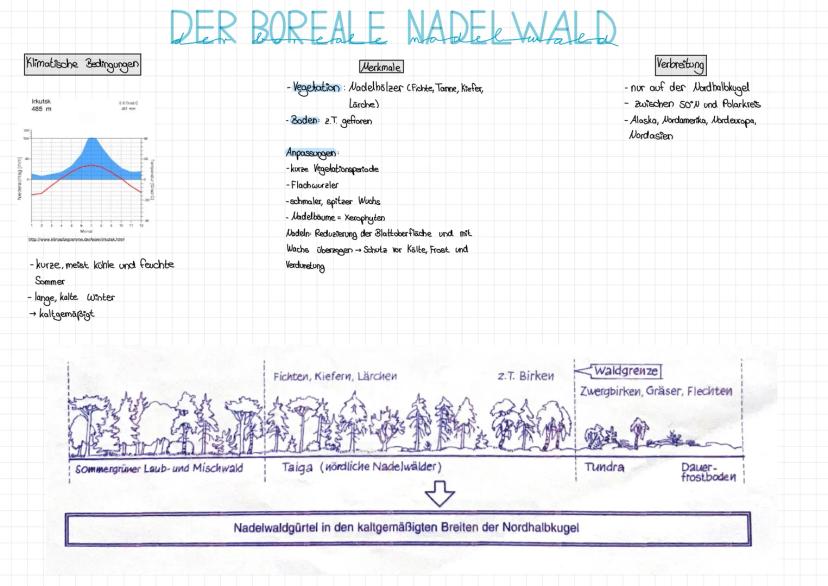 DER BOREALE NADELWALD
der boreale nadelwald
Klimatische Bedingungen
Irkutsk
485 m
Niederschlag [mm]
Monat
http://www.klimadiagramme.de/Asien/irkutsk.html
- kurze, meist kühle und feuchte
Sommer
- lange, kalte Winter
→ kaltgemäßigt
Merkmale
- Vegetation: Nadelhölzer (Fichte, Tanne, Kiefer,
Lärche)
- Boden: z.T. gefroren
Anpassungen:
- kurze Vegetationsperiode
- Flachwurzler
- schmaler, spitzer Wuchs
- Nadelbäume = Xerophyten
Nadeln: Reduzierung der Blattoberfläche und mit
Wachs überzogen → Schutz vor Kälte, Frost und
Verdunstung
Verbreitung
- nur auf der Nordhalbkugel
- zwischen 50°N und Polarkreis
- Alaska, Nordamerika, Nordeuropa,
Nordasien
Fichten, Kiefern, Lärchen
z.T. Birken
Waldgrenze
Zwergbirken, Gräser, Flechten
Sommergrüner Laub- und Mischwald
Taiga (nördliche Nadelwälder)
Tundra
Dauer-
frostboden
Nadelwaldgürtel in den kaltgemäßigten Breiten der Nordhalbkugel